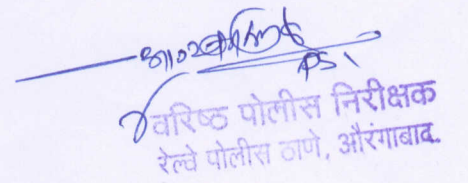 PSI
वरिष्ठ पोलीस निरीक्षक
रेल्वे पोलीस ठाणे, औरंगाबाद.